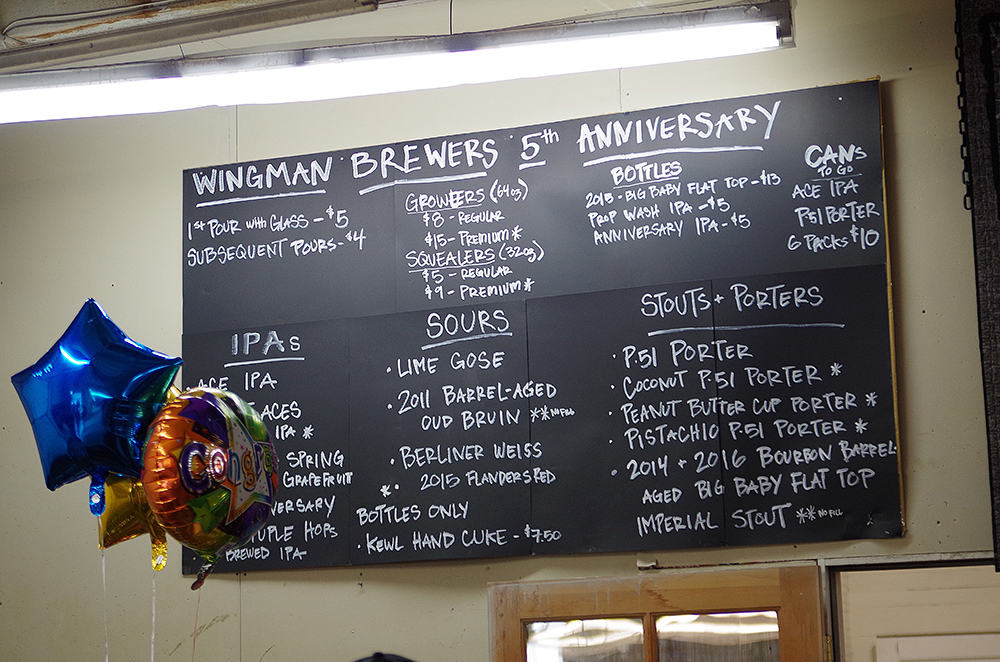 WINGMAN BREWERS 5th ANNIVERSARY
1st POUR with GLASS - $5
SUBSEQUENT POURS - $4
GROWLERS (64oz)
$8 - REGULAR
$15 - PREMIUM *
SQUEALERS (32oz)
$5 - REGULAR
$9 - PREMIUM *
BOTTLES
2015 - BIG BABY FLAT TOP - $13
PROP WASH IPA - $5
ANNIVERSARY IPA - $5
CANS
TO GO
ACE IPA
P-51 PORTER
6 PACKS $10
IPAS
ACE IPA
ACES
IPA *
SPRING
GRAPEFRUIT
HOPS
BREWED IPA
SOURS
• LIME GOSE
• 2011 BARREL-AGED
OUD BRUIN ** NO FILL
• BERLINER WEISS
** 2015 FLANDERS RED
BOTTLES ONLY
• KEWL HAND CUKE - $7.50
STOUTS + PORTERS
• P-51 PORTER
• COCONUT P-51 PORTER *
• PEANUT BUTTER CUP PORTER *
• PISTACHIO P-51 PORTER *
• 2014 + 2016 BOURBON BARREL-
AGED BIG BABY FLAT TOP
IMPERIAL STOUT ** NO FILL